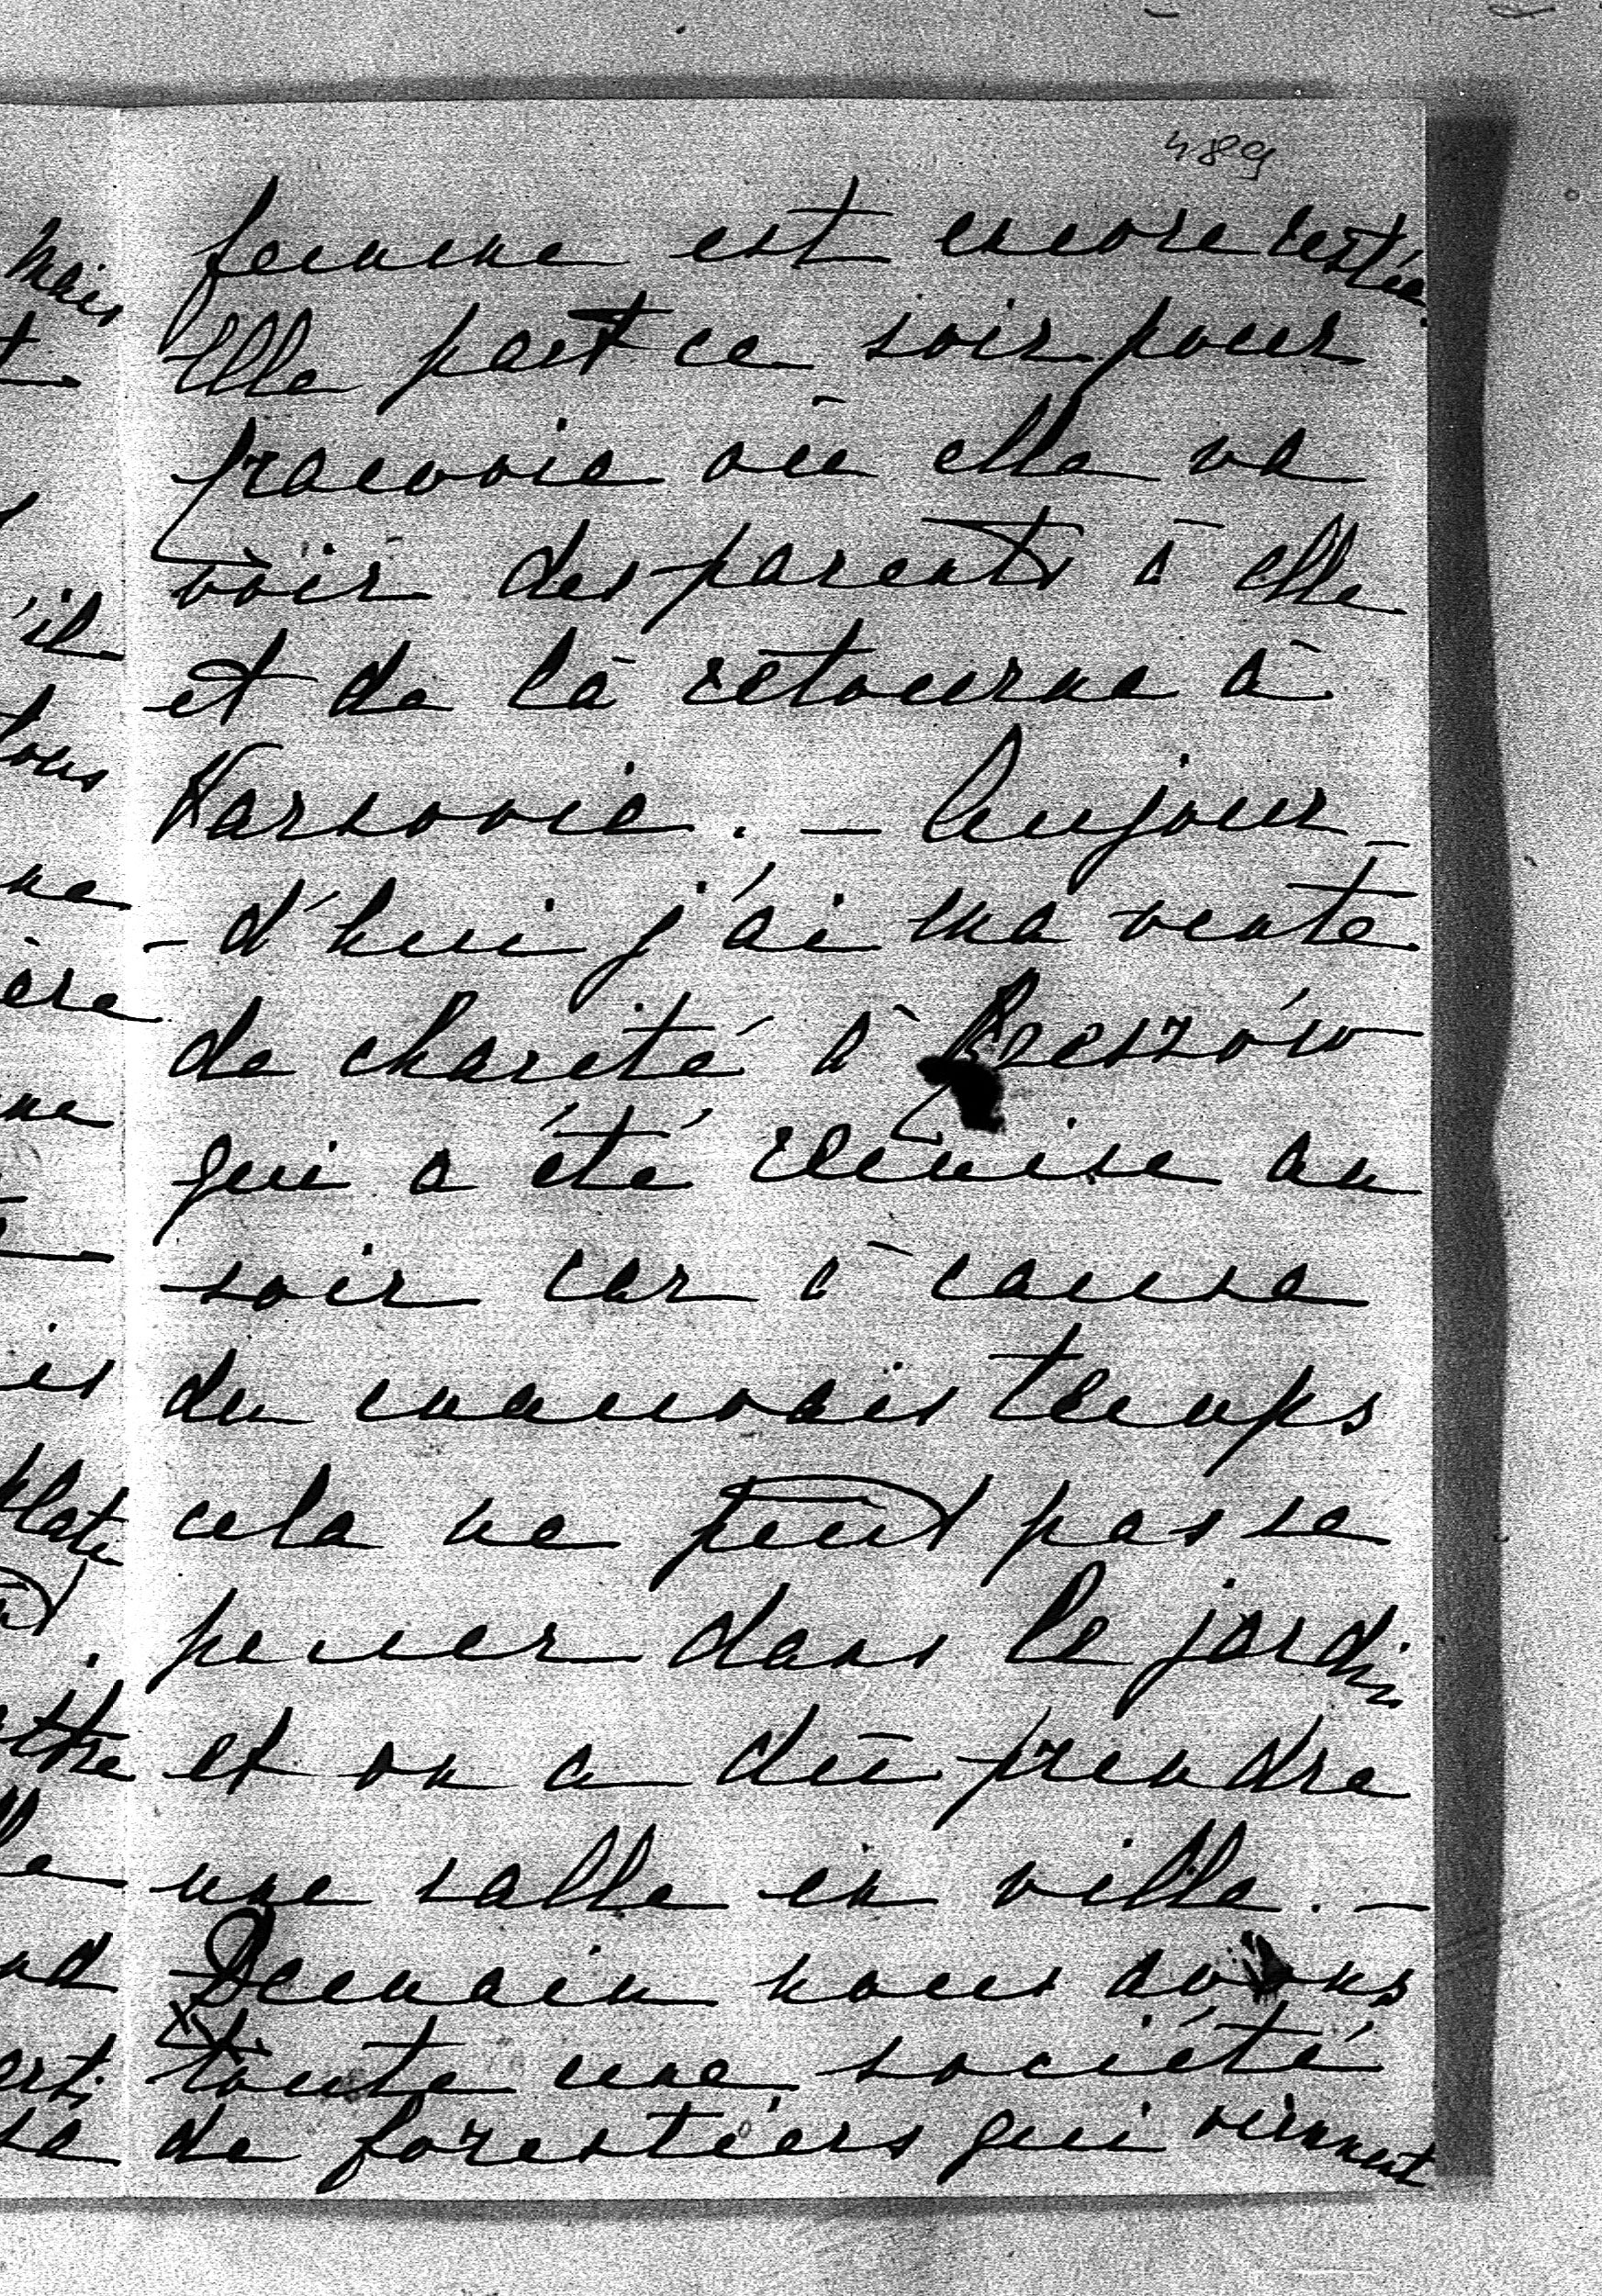 489
femme est encore restée.
Elle part ce soir pour
Cracovie où elle va
voir des parents à elle
et de là retourne à
Varsovie. — Aujour-
- d'hui j'ai ma vente
de charité à Rzeszów
qui a été remise au
soir car à cause
du mauvais temps
cela ne peut pas se
passer dans le jardin
et on a dû prendre
une salle en ville. —
Demain nous avons
toute une société
de forestiers qui viennent